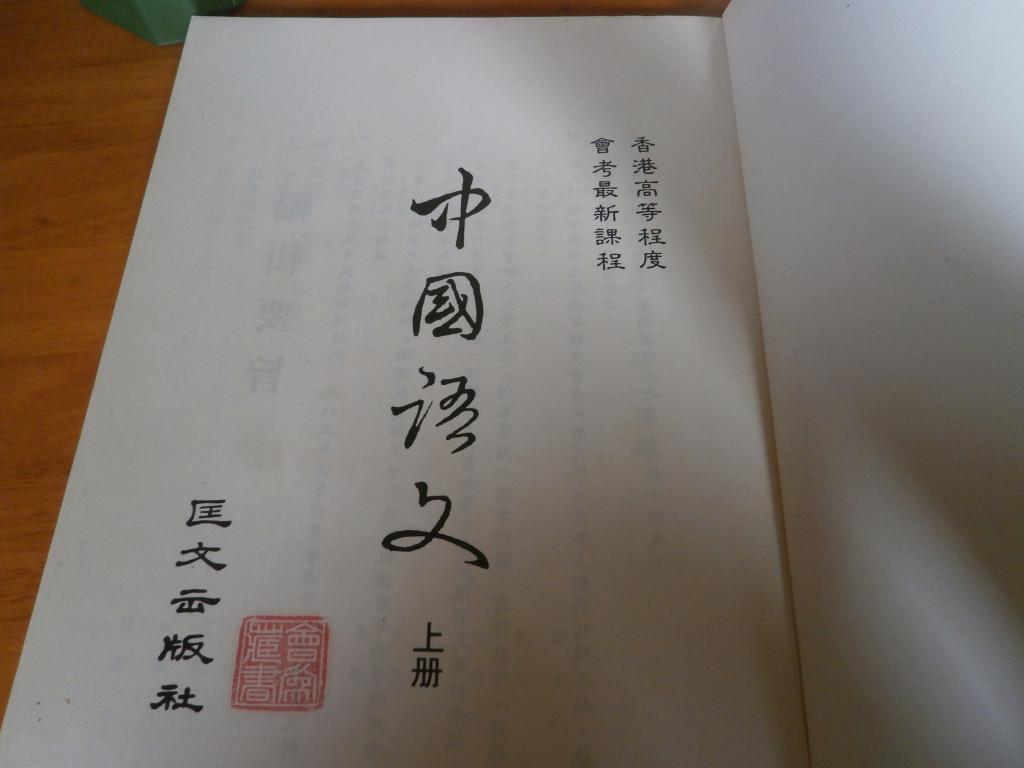 香港高等程度
會考最新課程
中國語文
上册
匡文出版社
藏書